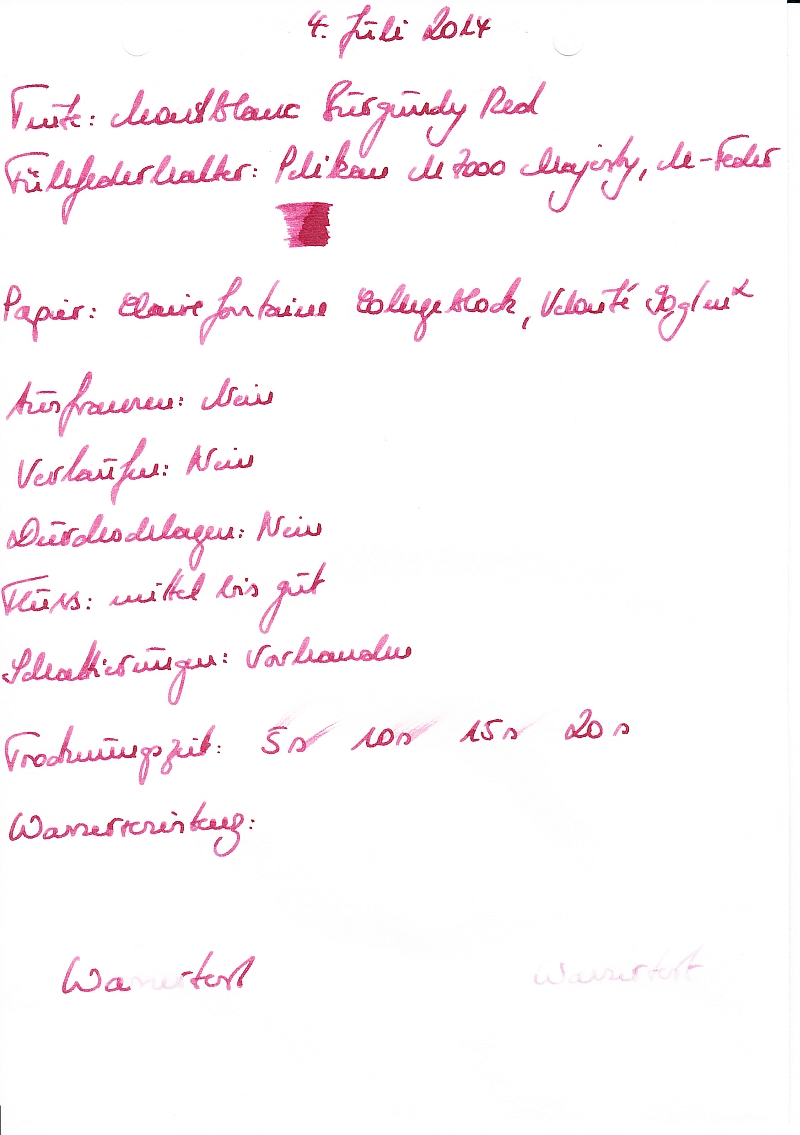 4. Juli 2014
Tinte: Montblanc Burgundy Red
Füllfederhalter: Pelikan M 7000 Majesty, M-Feder
Papier: Clairefontaine Collegeblock, Velouté 90g/m²
Ausfransen: Nein
Verlaufen: Nein
Durchschlagen: Nein
Fluss: mittel bis gut
Schattierungen: Vorhanden
Trocknungszeit: 5s 10s 15s 20s
Wasserresistenz:
Wassertest Wassertest